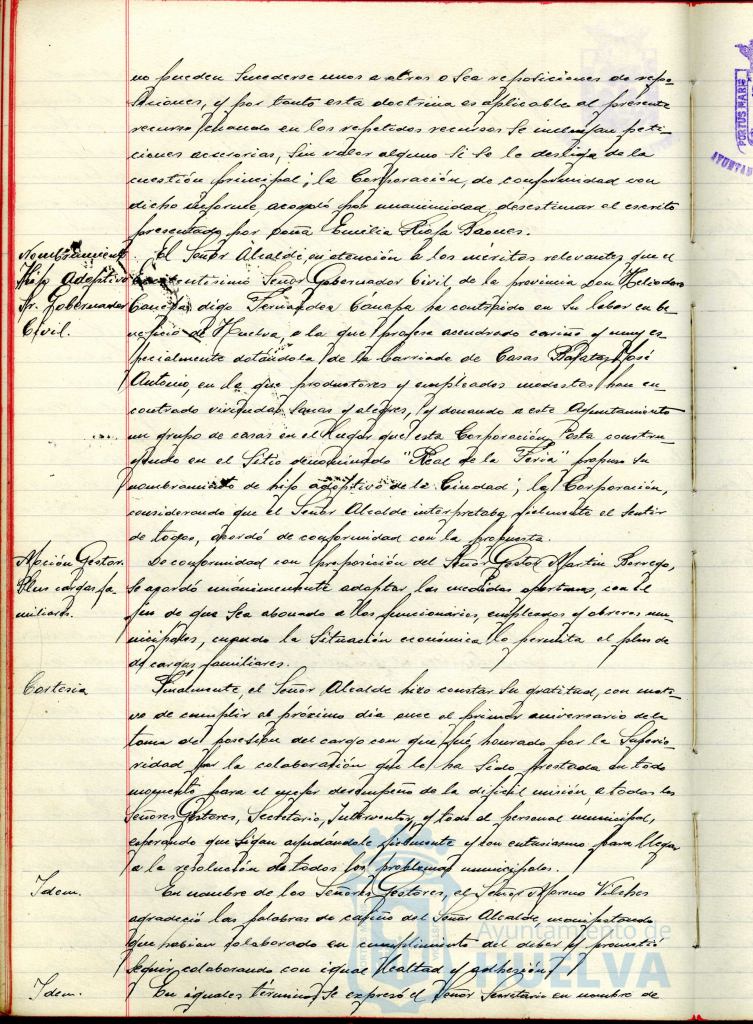 no pueden sucederse unos a otros o sea reposiciones de repo-
siciones, y por tanto esta doctrina es aplicable al presente
recurso cuando en los repetidos recursos se incluyan peti-
ciones accesorias, sin valor alguno si se le desliga de la
cuestión principal; la Corporación, de conformidad con
dicho informe, acordó por unanimidad, desestimar el escrito
presentado por doña Emilia Rioja Baones.
Nombramiento
Hijo Adoptivo
Sr. Gobernador
Civil.
El Señor Alcalde, en atención a los méritos relevantes que el
Excelentísimo Señor Gobernador Civil de la provincia Don Heliodoro
Canepa, digo Fernandez Cánepa ha contraido en su labor en be-
neficio de Huelva, a la que profesa acendrado cariño y muy es-
pecialmente dotándola de la barriada de Casas Baratas José
Antonio, en la que productores y empleados modestos han en-
contrado viviendas sanas y alegres, y donando a este Ayuntamiento
un grupo de casas en el Hogar que esta Corporación está constru-
yendo en el sitio denominado "Real de la Feria" propuso su
nombramiento de hijo adoptivo de la Ciudad; la Corporación,
considerando que el Señor Alcalde interpretaba fielmente el sentir
de todos, acordó de conformidad con la propuesta.
Moción Gestor.
Plus cargas fa-
miliares.
De conformidad con proposición del Señor Gestor Martin Borrego,
se acordó unánimemente adoptar las medidas oportunas, con el
fin de que sea abonado a los funcionarios, empleados y obreros mu-
nicipales, cuando la situación económica lo permita el plus de
de cargas familiares.
Cortesia
Finalmente, el Señor Alcalde hizo constar su gratitud, con moti-
vo de cumplir el próximo dia once el primer aniversario de la
toma de posesión del cargo con que fué honrado por la Superio-
ridad por la colaboración que le ha sido prestada en todo
momento para el mejor desempeño de la dificil misión, a todos los
Señores Gestores, Secretario, Interventor, y todo el personal municipal,
esperando que sigan ayudándole fielmente y con entusiasmo para llegar
a la resolución de todos los problemas municipales.
Idem.
En nombre de los Señores Gestores, el Señor Moreno Vilches
agradeció las palabras de cariño del Señor Alcalde, manifestando
que habian colaborado en cumplimiento del deber y prometió
seguir colaborando con igual lealtad y adhesión.
Idem.
En iguales términos se expresó el Señor Secretario en nombre de
PORTUS MARIS
AYUNTA
Ayuntamiento de
HUELVA